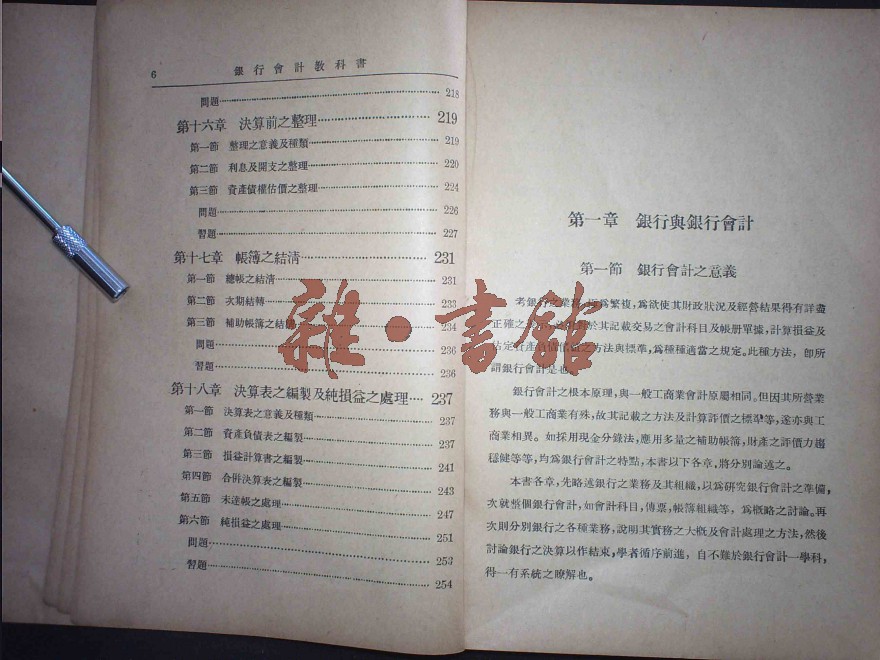 6 銀行會計教科書
問題 218
第十六章 決算前之整理 219
第一節 整理之意義及種類 219
第二節 利息及開支之整理 220
第三節 資產債權估價之整理 224
問題 226
習題 227
第十七章 帳簿之結清 231
第一節 總帳之結清 231
第二節 次期結轉 233
第三節 補助帳簿之結 234
問題 236
習題 236
第十八章 決算表之編製及純損益之處理 237
第一節 決算表之意義及種類 237
第二節 資產負債表之編製 237
第三節 損益計算書之編製 241
第四節 合併決算表之編製 243
第五節 未達帳之處理 247
第六節 純損益之處理 251
問題 253
習題 254
第一章 銀行與銀行會計
第一節 銀行會計之意義
考銀行之業務爲繁複，爲欲使其財政狀況及經營結果得有詳盡
正確之於其記載交易之會計科目及帳册單據，計算損益及
估定資產之方法與標準，爲種種適當之規定。此種方法，卽所
謂銀行會計是也
銀行會計之根本原理，與一般工商業會計原屬相同。但因其所營業
務與一般工商業有殊，故其記載之方法及計算評價之標準等，遂亦與工
商業相異。如採用現金分錄法，應用多量之補助帳簿，財產之評價力趨
穩健等等，均爲銀行會計之特點，本書以下各章，將分別論述之。
本書各章，先略述銀行之業務及其組織，以爲研究銀行會計之準備，
次就整個銀行會計，如會計科目，傳票，帳簿組織等，爲概略之討論。再
次則分別銀行之各種業務，說明其實務之大槪及會計處理之方法，然後
討論銀行之決算以作結束，學者循序前進，自不難於銀行會計一學科，
得一有系統之瞭解也。
雜·書館